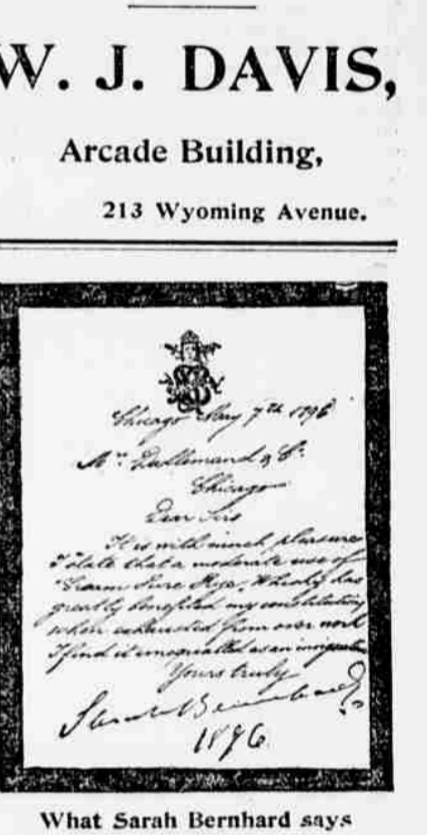 W. J. DAVIS,
Arcade Building,
213 Wyoming Avenue.
Chicago May 7th 1896
Mrs. Dallemand & Co
Chicago
Dear Sirs
It is with much pleasure
I state that a moderate use of
"Cream Pure Rye" Whisky has
greatly benefited my constitution
when exhausted from over work
I find it unequalled as an invigorator
Yours truly
Sarah Bernhardt
1896
What Sarah Bernhard says